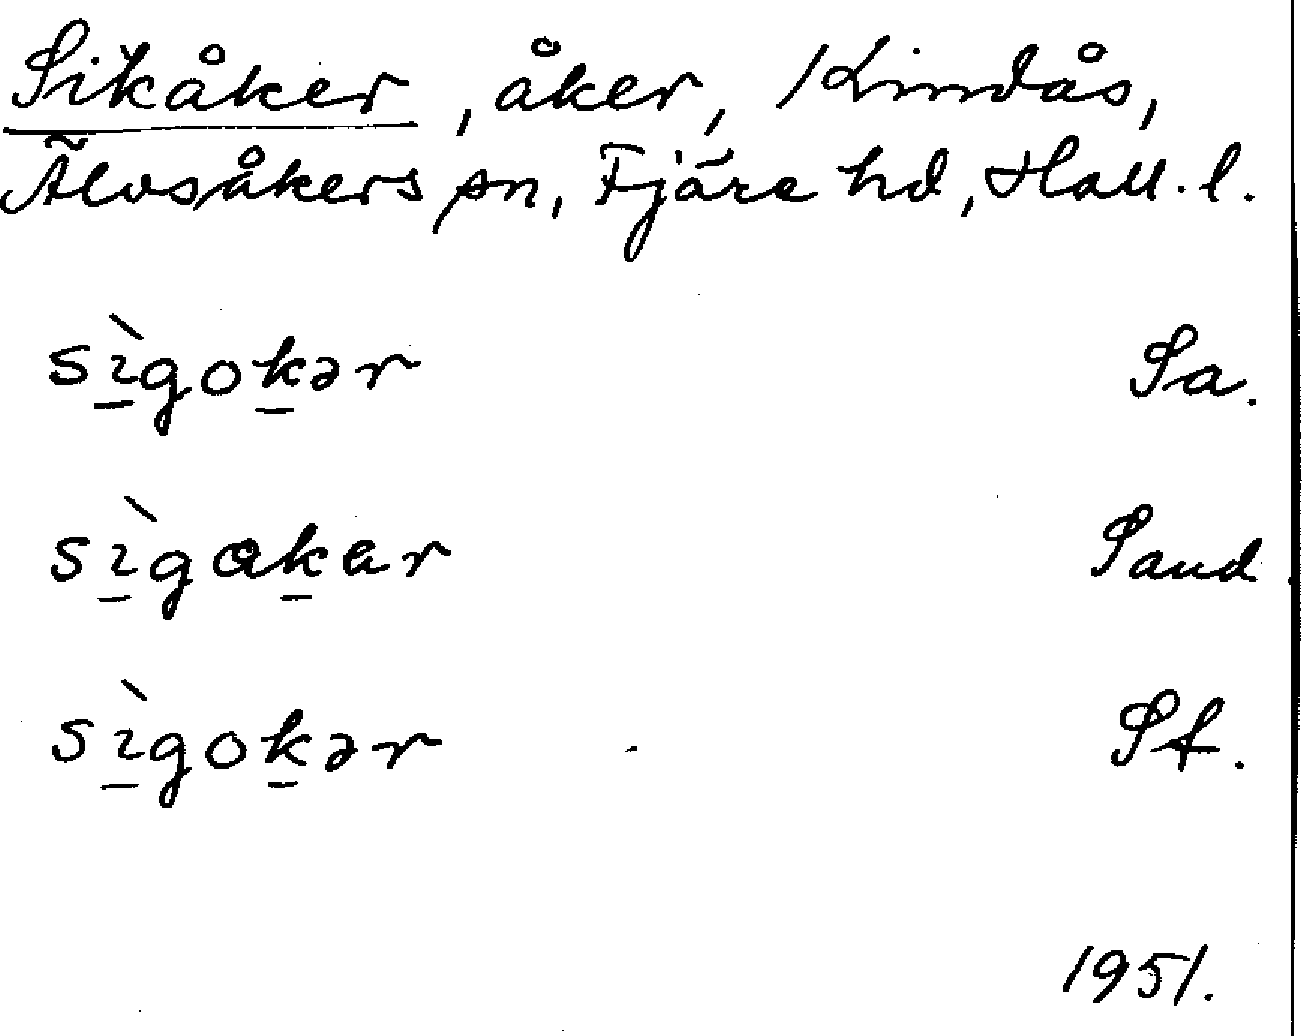 Sikåker, åker, Kindås,
Älvsåkers sn, Fjäre hd, Hall. l.
sìgokər Sa.
sìgakar Sand
sìgokər Sf.
1951.